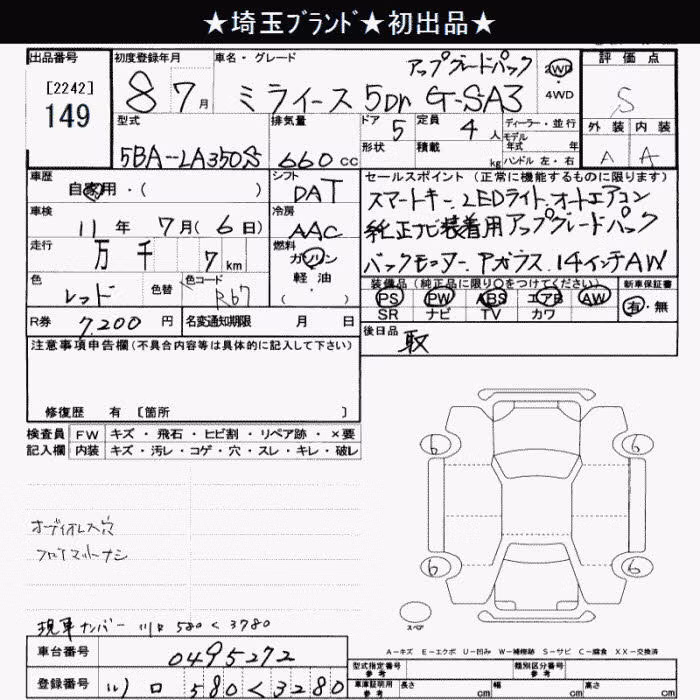 ★埼玉ﾌﾞﾗﾝﾄﾞ★初出品★
出品番号
[2242]
149
初度登録年月
8 7 月
車名・グレード
アップグレードパック
ミライース 5Dr G-SA3
2WD
・
4WD
評価点
S
外装 内装
A A
型式
5BA-LA350S
排気量
660 cc
ドア
5
形状
定員
4 人
積載
kg
ディーラー・並行
モデル
年式 年
ハンドル 左・右
車歴
自家用・( )
シフト
DAT
車検
11 年 7 月 ( 6 日)
冷房
AAC
走行
万 千 7 km
燃料
ガソリン
・
軽油
( )
色
レッド
色替
色コード
R67
R券
7,200 円
名変通知期限 月 日
セールスポイント (正常に機能するものに限ります)
スマートキー、LEDライト、オートエアコン
純正ナビ装着用アップグレードパック
バックモニター、Pガラス、14インチAW
装備品(純正品に限り○をつけてください)
PS PW ABS エアB AW
SR ナビ TV カワ
新車保証書
有・無
後日品
取
注意事項申告欄(不具合内容等は具体的に記入して下さい)
修復歴 有 [箇所 ]
検査員 FW キズ・飛石・ヒビ割・リペア跡・×要
記入欄 内装 キズ・汚レ・コゲ・穴・スレ・キレ・破レ
オーディオレス穴
フロアマットナシ
現車ナンバー 川口 580 く 3780
車台番号
0495272
登録番号
川口 580 く 3280
6 6
6 6
スペア
A-キズ E-エクボ U-凹み W-補修跡 S-サビ C-腐食 XX-交換済
型式指定番号
参考
類別区分番号
参考
車庫証明用
参考
長さ cm 幅 cm 高さ cm